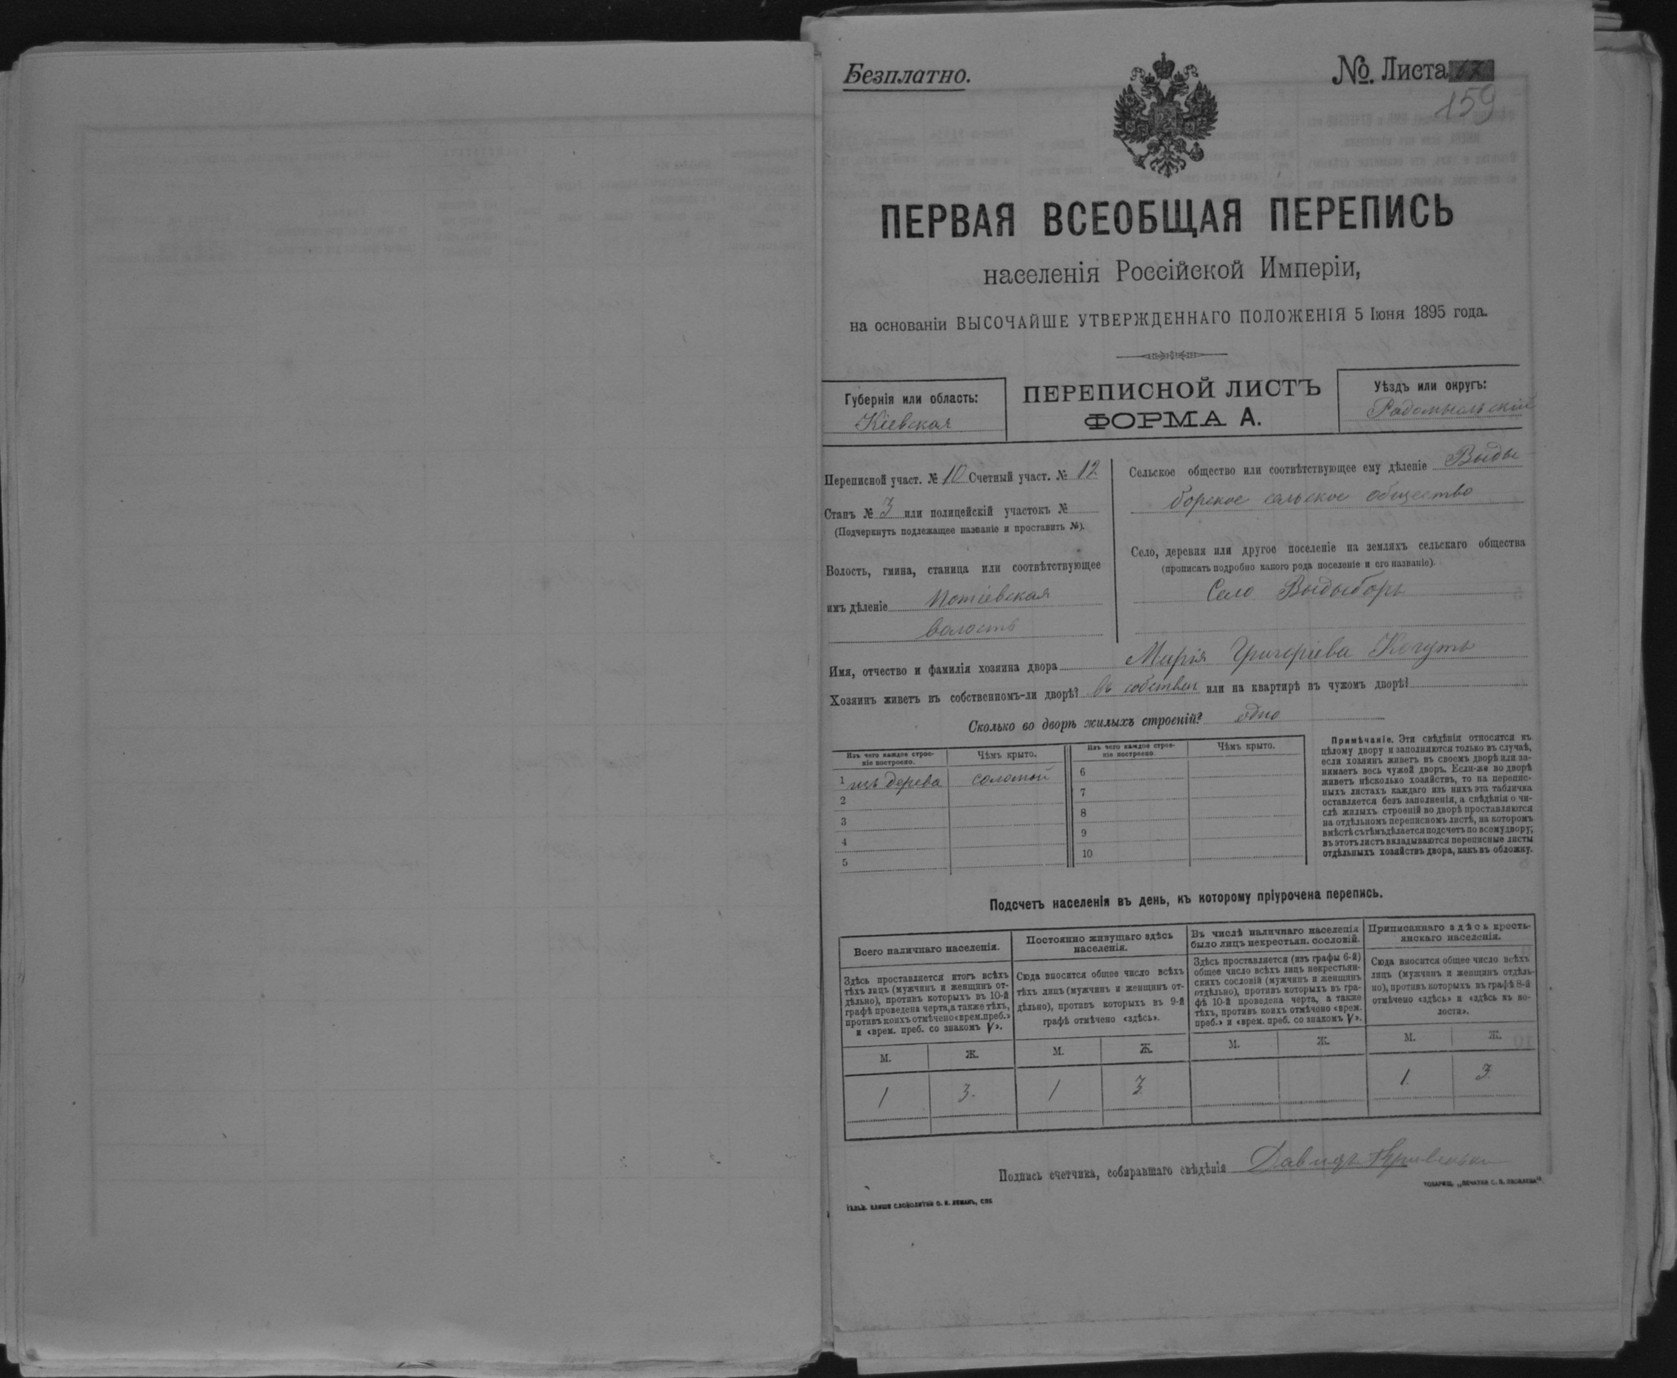 Безплатно.
№. Листа
159
ПЕРВАЯ ВСЕОБЩАЯ ПЕРЕПИСЬ
населенія Россійской Имперіи,
на основаніи ВЫСОЧАЙШЕ УТВЕРЖДЕННАГО ПОЛОЖЕНІЯ 5 Іюня 1895 года.
Губернія или область:
Кіевская
ПЕРЕПИСНОЙ ЛИСТЪ
ФОРМА А.
Уѣздъ или округъ:
Радомысльскій
Переписной участ. № 10 Счетный участ. № 12
Станъ № 3 или полицейскій участокъ №
(Подчеркнуть подлежащее названіе и проставить №).
Волость, гмина, станица или соотвѣтствующее
имъ дѣленіе Потіевская
волость
Сельское общество или соотвѣтствующее ему дѣленіе Выды
борское сельское общество
Село, деревня или другое поселеніе на земляхъ сельскаго общества
(прописать подробно какого рода поселеніе и его названіе).
Село Выдыборъ
Имя, отчество и фамилія хозяина двора Марія Григоріева Когутъ
Хозяинъ живетъ въ собственномъ-ли дворѣ? въ собствен или на квартирѣ въ чужомъ дворѣ?
Сколько во дворѣ жилыхъ строеній? одно
Изъ чего каждое строе-
ніе построено.
Чѣмъ крыто.
Изъ чего каждое строе-
ніе построено.
Чѣмъ крыто.
1 изъ дерева соломой
2
3
4
5
6
7
8
9
10
Примѣчаніе. Эти свѣдѣнія относятся къ
цѣлому двору и заполняются только въ случаѣ,
если хозяинъ живетъ въ своемъ дворѣ или за-
нимаетъ весь чужой дворъ. Если-же во дворѣ
живетъ нѣсколько хозяйствъ, то на перепис-
ныхъ листахъ каждаго изъ нихъ эта табличка
оставляется безъ заполненія, а свѣдѣнія о чи-
слѣ жилыхъ строеній во дворѣ проставляются
на отдѣльномъ переписномъ листѣ, на которомъ
вмѣстѣ съ тѣмъ дѣлается подсчетъ по всему двору;
въ этотъ листъ вкладываются переписные листы
отдѣльныхъ хозяйствъ двора, какъ въ обложку.
Подсчетъ населенія въ день, къ которому пріурочена перепись.
Всего наличнаго населенія.
Здѣсь проставляется итогъ всѣхъ
тѣхъ лицъ (мужчинъ и женщинъ от-
дѣльно), противъ которыхъ въ 10-й
графѣ проведена черта, а также тѣхъ,
противъ коихъ отмѣчено «врем. преб.»
и «врем. преб. со знакомъ V».
Постоянно живущаго здѣсь
населенія.
Сюда вносится общее число всѣхъ
тѣхъ лицъ (мужчинъ и женщинъ от-
дѣльно), противъ которыхъ въ 9-й
графѣ отмѣчено «здѣсь».
Въ числѣ наличнаго населенія
было лицъ некрестьян. сословій.
Здѣсь проставляется (изъ графы 6-й)
общее число всѣхъ лицъ некрестьян-
скихъ сословій (мужчинъ и женщинъ
отдѣльно), противъ которыхъ въ гра-
фѣ 10-й проведена черта, а также
тѣхъ, противъ коихъ отмѣчено «врем.
преб.» и «врем. преб. со знакомъ V».
Приписаннаго здѣсь кресть-
янскаго населенія.
Сюда вносится общее число всѣхъ
лицъ (мужчинъ и женщинъ отдѣль-
но), противъ которыхъ въ графѣ 8-й
отмѣчено «здѣсь» и «здѣсь въ во-
лости».
М. Ж. М. Ж. М. Ж. М. Ж.
1 3. 1 3 1 3
Подпись счетчика, собиравшаго свѣдѣнія Давидъ